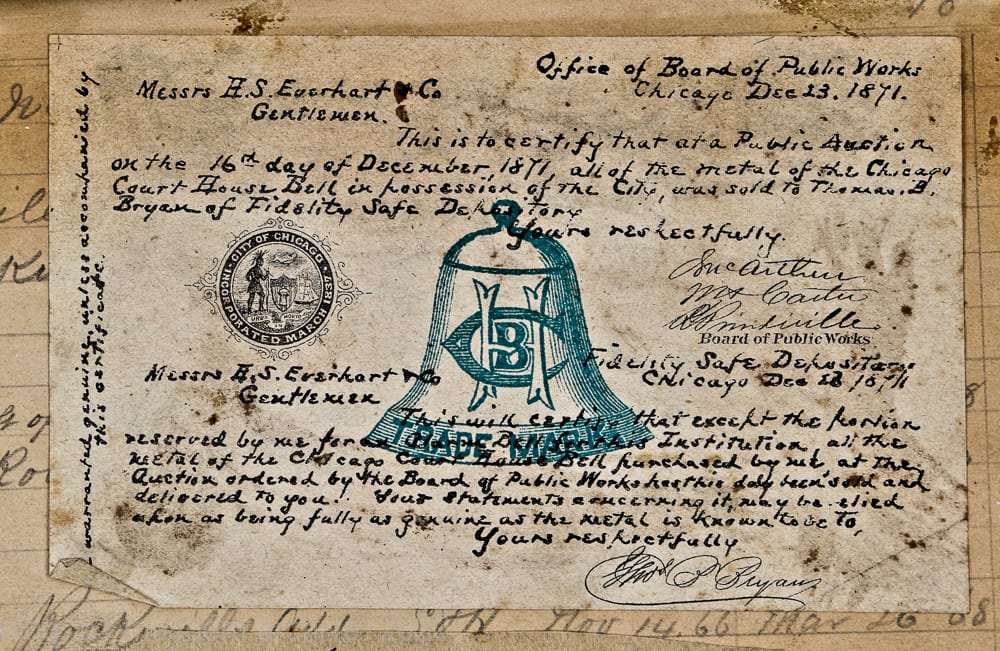 Office of Board of Public Works
Chicago Dec 23. 1871.
Messrs H.S. Everhart & Co
Gentlemen.
This is to certify that at a Public Auction
on the 16th day of December, 1871, all of the metal of the Chicago
Court House Bell in possession of the City, was sold to Thomas. B.
Bryan of Fidelity Safe Depository
Yours respectfully.
CITY OF CHICAGO
INCORPORATED MARCH
CBH
TRADE MARK
Board of Public Works
Fidelity Safe Depositary
Chicago Dec 23 1871
Messrs H.S. Everhart & Co
Gentlemen
This will certify that except the portion
reserved by me for an Alarm Bell for this Institution, all the
metal of the Chicago Court House Bell purchased by me, at the
Auction ordered by the Board of Public Works has this day been sold and
delivered to you. Your statements concerning it, may be relied
upon as being fully as genuine as the metal is known to be to,
Yours respectfully
Thos B Bryan
warranted genuine, unless accompanied by
this certificate.
Nov 14. 66 Mar 26 68